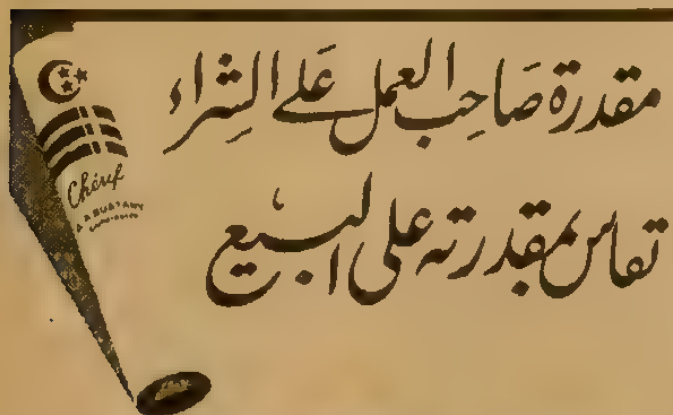 مقدرة صَاحِب العمل عَلى الشِراء
تقاس بمقدرته على البيع
Chérif